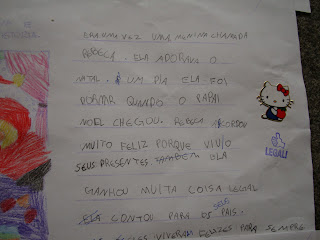 ERA UMA VEZ UMA MENINA CHAMADA
REBECA. ELA ADORAVA O
NATAL. UM DIA ELA FOI
DORMIR QUANDO O PAPAI
NOEL CHEGOU. REBECA ACORDOU
MUITO FELIZ PORQUE VIU
SEUS PRESENTES TAMBÉM ELA
GANHOU MUITA COISA LEGAL
ELA CONTOU PARA OS SEUS PAIS.
VIVERAM FELIZES PARA SEMPRE
LEGAL!